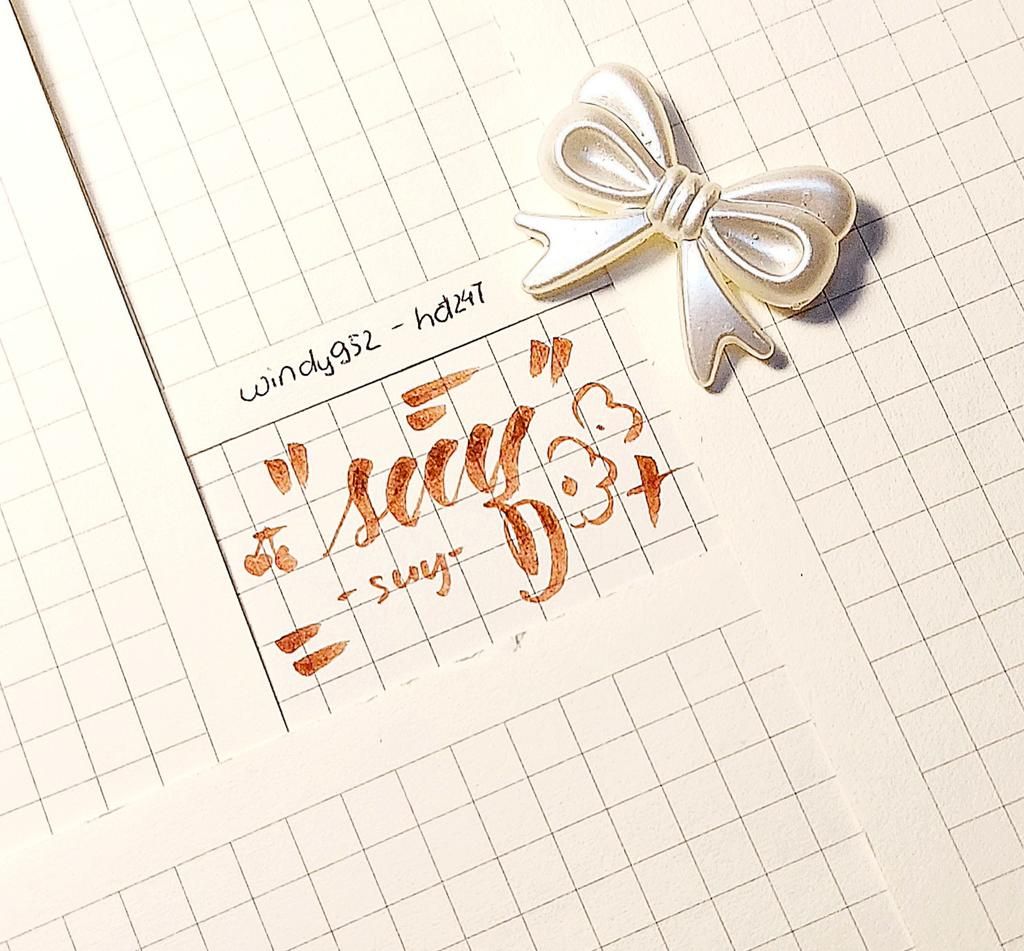 windy952 - hd247
" suy "
- suy -